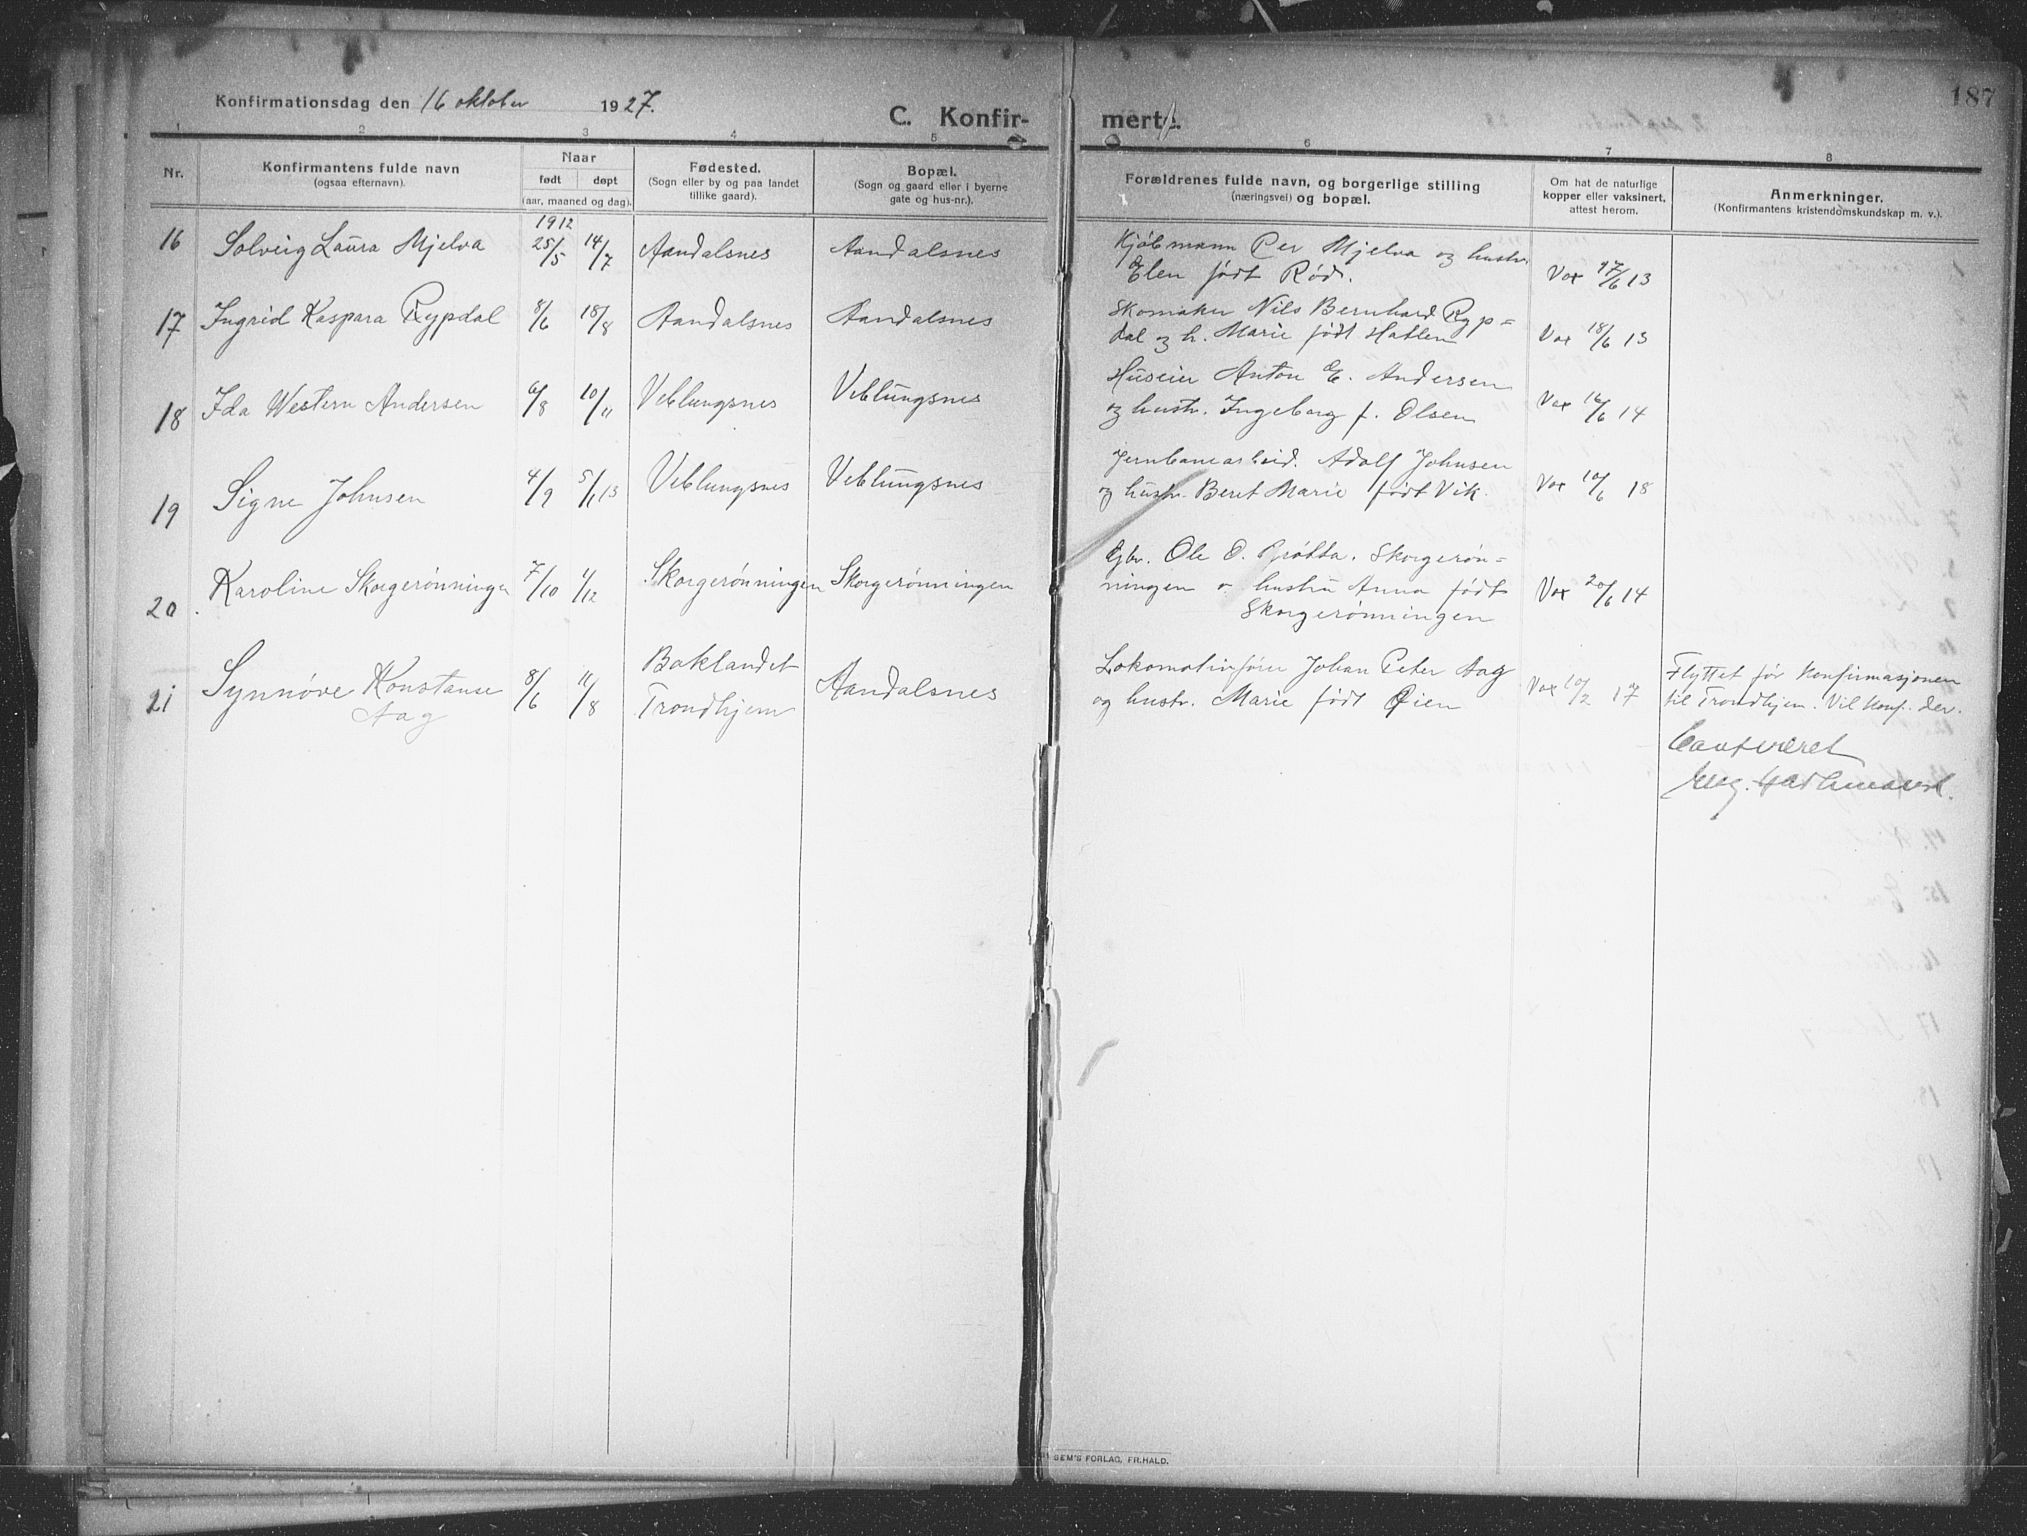 Konfirmationsdag den 16 oktober 1927.
C. Konfirmerte.
187
1 2 3 4 5 6 7 8
Nr.
Konfirmantens fulde navn
(ogsaa efternavn).
Naar
født døpt
(aar, maaned og dag).
Fødested.
(Sogn eller by og paa landet
tillike gaard).
Bopæl.
(Sogn og gaard eller i byerne
gate og hus-nr.).
Forældrenes fulde navn, og borgerlige stilling
(næringsvei) og bopæl.
Om hat de naturlige
kopper eller vaksinert,
attest herom.
Anmerkninger.
(Konfirmantens kristendomskundskap m. v.).
1912
16 Solveig Laura Mjelva 25/5 14/7 Aandalsnes Aandalsnes Kjøbmann Per Mjelva og hustr.
Elen født Rød. Vax 17/6 13
17 Ingrid Kaspara Rypdal 8/6 18/8 Aandalsnes Aandalsnes Skomaker Nils Bernhard Ryp=
dal og h. Marie født Hatlen Vax 18/6 13
18 Ida Western Andersen 6/8 10/11 Veblungsnes Veblungsnes Huseier Anton E. Andersen
og hustr. Ingeborg f. Olsen Vax 16/6 14
19 Signe Johnsen 4/9 5/1 13 Veblungsnes Veblungsnes Jernbanearbeid. Adolf Johnsen
og hustr. Beret Marie født Vik. Vax 10/6 18
20. Karoline Skorgerønningen 7/10 1/12 Skorgerønningen Skorgerønningen Gbr. Ole O. Brøtta. Skorgerøn=
ningen o. hustru Anna født
Skorgerønningen Vax 20/6 14
21 Synnøve Konstanse
Aag 8/6 11/8 Baklandet
Trondhjem Aandalsnes Lokomotivfører Johan Peter Aag
og hustr. Marie født Øien Vax 10/2 17 Flyttet før Konfirmasjonen
til Trondhjem. Vil konf. der.
SEM'S FORLAG, FR.HALD.